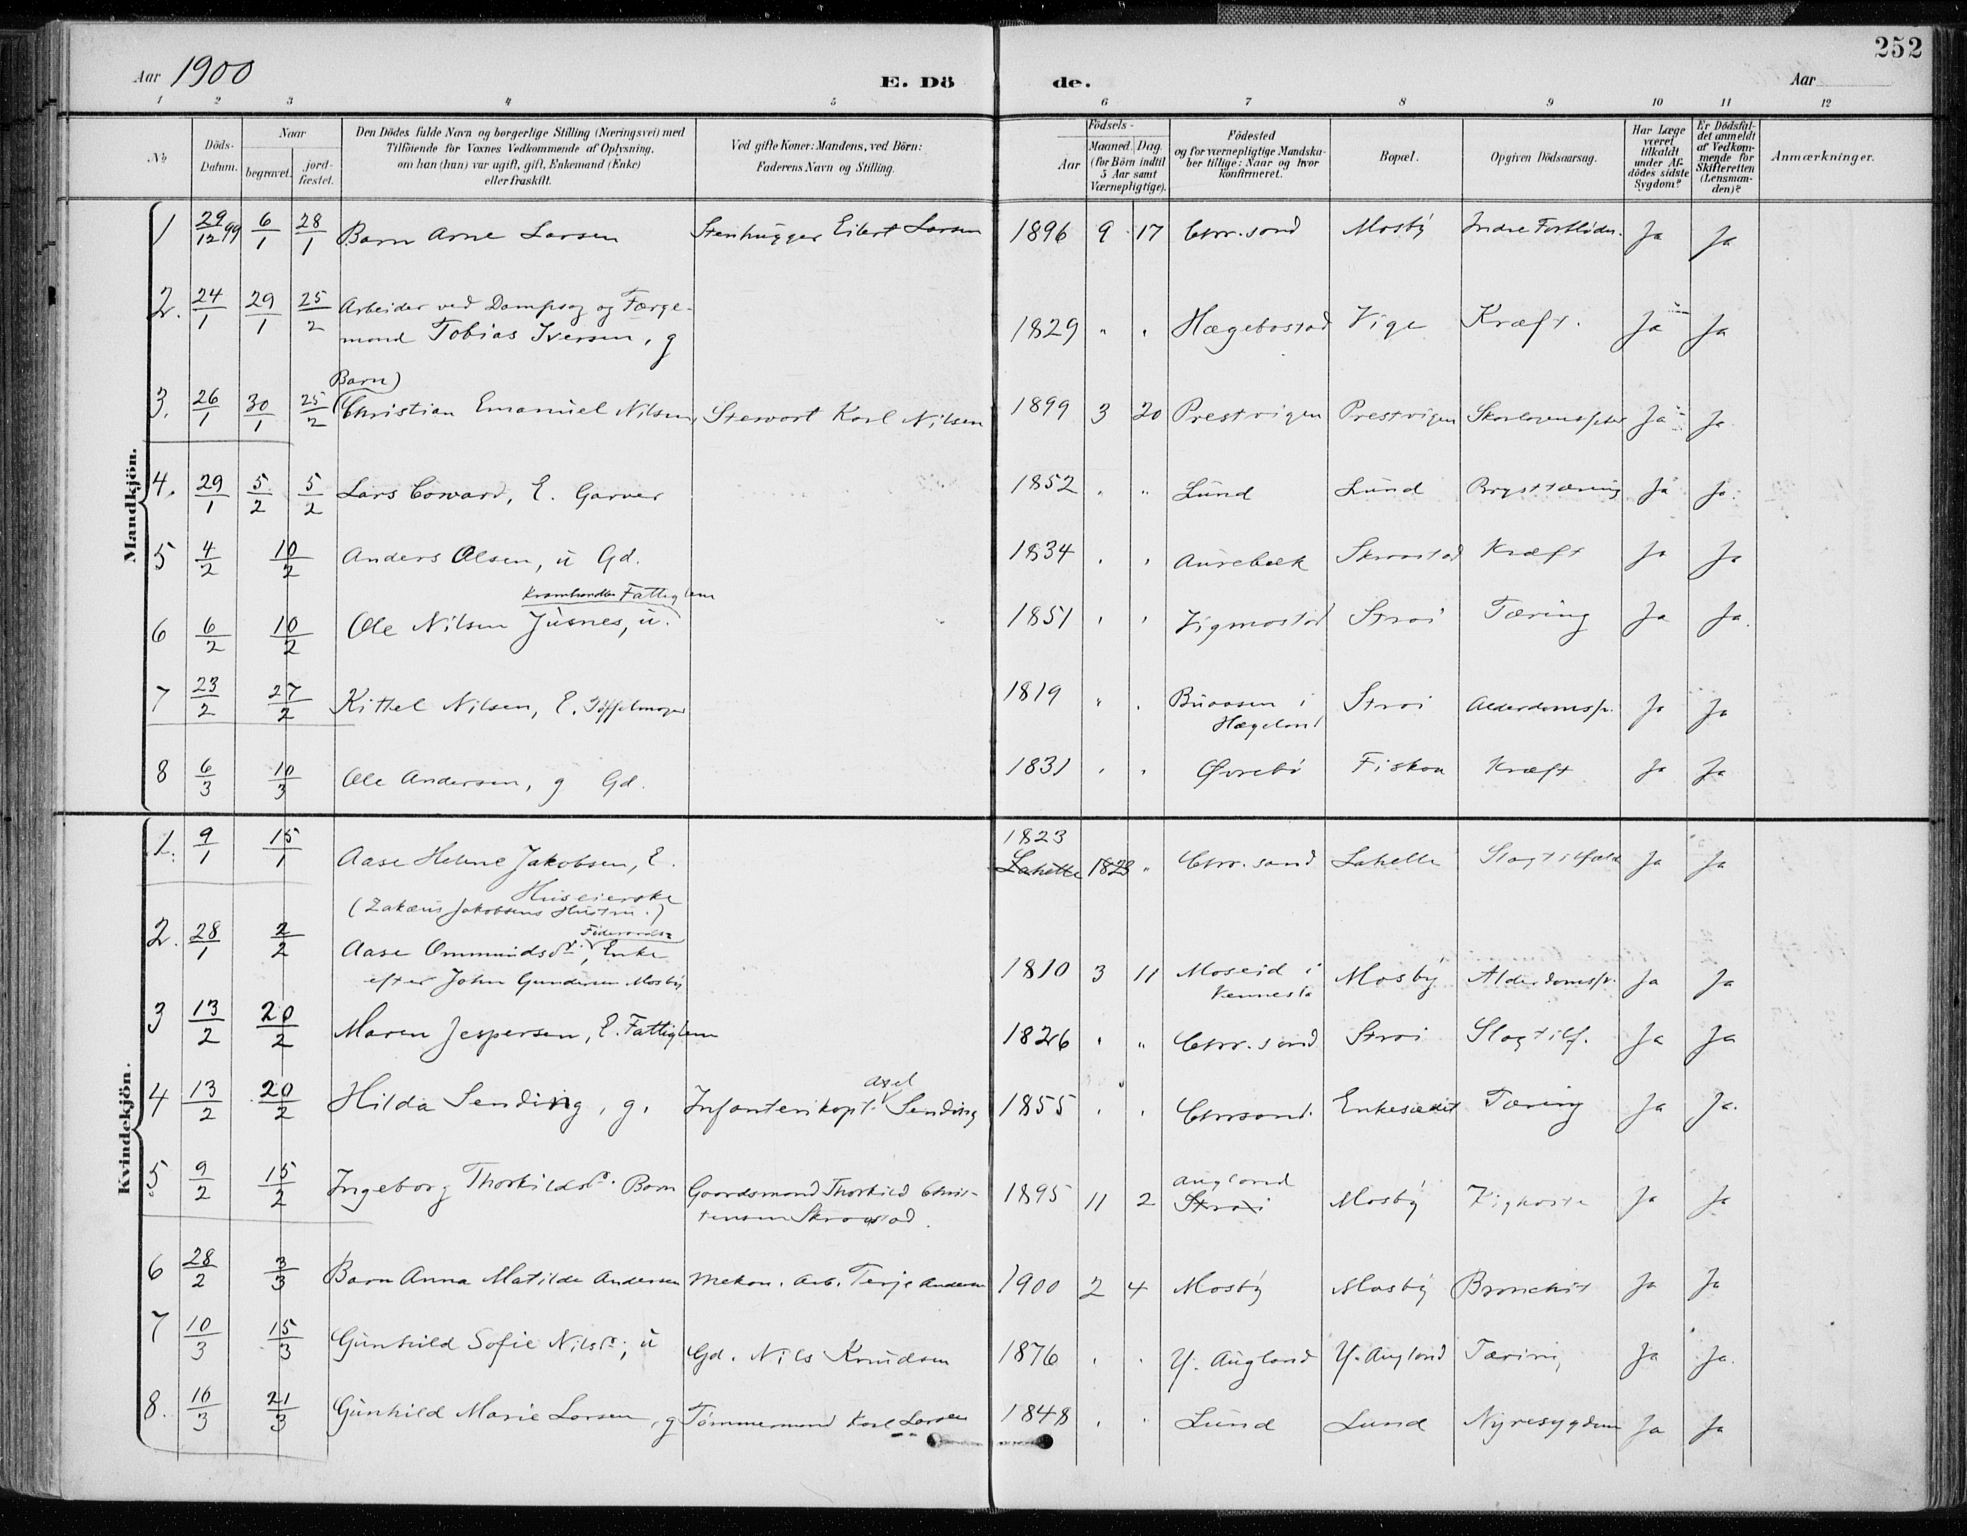 252
Aar 1900 E. Dö de. Aar
1 2 3 4 5 6 7 8 9 10 11 12
No Döds-Datum. Naar begravet. jord-fæstet.
Den Dödes fulde Navn og borgerlige Stilling (Næringsvei) med
Tilföiende for Voxnes Vedkommende af Oplysning,
om han (hun) var ugift, gift, Enkemand (Enke)
eller fraskilt.
Ved gifte Koner: Mandens, ved Börn:
Faderens Navn og Stilling.
Födsels-
Aar Maaned. Dag.
(for Börn indtil
5 Aar samt
Værnepligtige).
Födested
og for værnepligtige Mandska-
ber tillige: Naar og hvor
konfirmeret.
Bopæl.
Opgiven Dödsaarsag.
Har Læge
været
tilkaldt
under Af-
dödes sidste
Sygdom?
Er Dödsfal-
det anmeldt
af Vedkom-
mende for
Skifteretten
(Lensman-
den)?
Anmærkninger.
Mandkjön.
1 29/12 99 6/1 28/1 Barn Arne Larsen Stenhugger Eilert Larsen 1896 9 17 Chr.sand Mosby Indre Ja Ja
2. 24/1 29/1 25/2 Arbeider ved Dampsag og Færge-
mand Tobias Iversen, g 1829 " " Hægebostad Vige Kræft. Ja Ja
Barn)
3. 26/1 30/1 25/2 Christian Emanuel Nilsen, Stewart Karl Nilsen 1899 3 20 Prestvigen Prestvigen Ja Ja
4. 29/1 5/2 5/2 Lars Coward, E. Garver 1852 " " Lund Lund Brysttæring Ja Ja
5 4/2 10/2 Anders Olsen, u Gd. 1834 " " Aurebæk Skraastad Kræft Ja Ja
Kramhandler Fattiglem
6 6/2 10/2 Ole Nilsen Jusnes, u. 1851 " " Vigmostad Strai Tæring Ja Ja.
7 23/2 27/2 Kittel Nilsen, E. Tøffelmager 1819 " " Buaasen i
Hægeland Strai Alderdomssv. Ja Ja
8 6/3 10/3 Ole Andersen, g Gd. 1831 " " Øvrebø Fiskaa Kræft Ja Ja
Kvindekjön.
1. 9/1 15/1 Aase Helene Jakobsen, E.
Huseierske
(Zakæus Jakobsens Hustru.) 1823
Lahelle 1823 " Chr.sand Lahelle Slagtilfælde Ja Ja
Føderaads-
2. 28/1 2/2 Aase Ommundsdr., Enke
efter John Gundersen Mosby 1810 3 11 Moseid i
Vennesla Mosby Alderdomssv. Ja Ja
3 13/2 20/2 Maren Jespersen, E. Fattiglem 1826 " " Chr.sand Strai Slagtilf. Ja Ja
Axel
4 13/2 20/2 Hilda Sending, g. Infanterikapt. Sending 1855 " " Chrsand. Enkesædet Tæring Ja Ja.
5 9/2 15/2 Ingeborg Thorkildsdr. Barn Gaardsmand Thorkild Chris-
tensen Skraastad. 1895 11 2 Augland
Strai Mosby Kighoste Ja Ja
6 28/2 3/3 Barn Anna Matilde Andersen Mekan. Arb. Terje Andersen 1900 2 4 Mosby Mosby Bronchit Ja Ja
7 10/3 15/3 Gunhild Sofie Nilsdr., u Gd. Nils Knudsen 1876 " " Y. Augland Y. Augland Tæring Ja Ja.
8. 16/3 21/3 Gunhild Marie Larsen, g Tømmermand Karl Larsen 1848 " " Lund Lund Nyresygdom Ja Ja